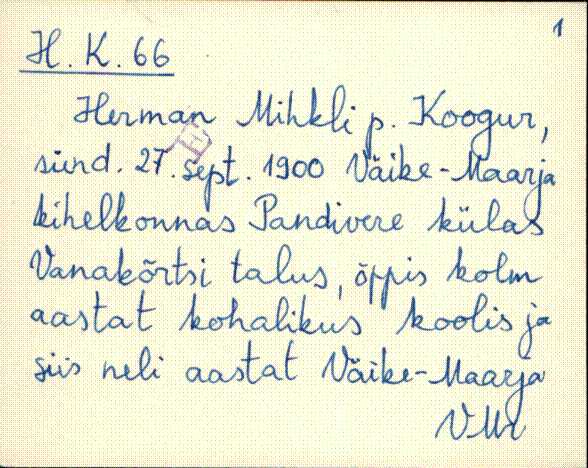 1
H. K. 66
Herman Mihkli p. Koogur,
sünd. 27. sept. 1900 Väike-Maarja
kihelkonnas Pandivere külas
Vanakõrtsi talus, õppis kolm
aastat kohalikus koolis ja
siis neli aastat Väike-Maarja